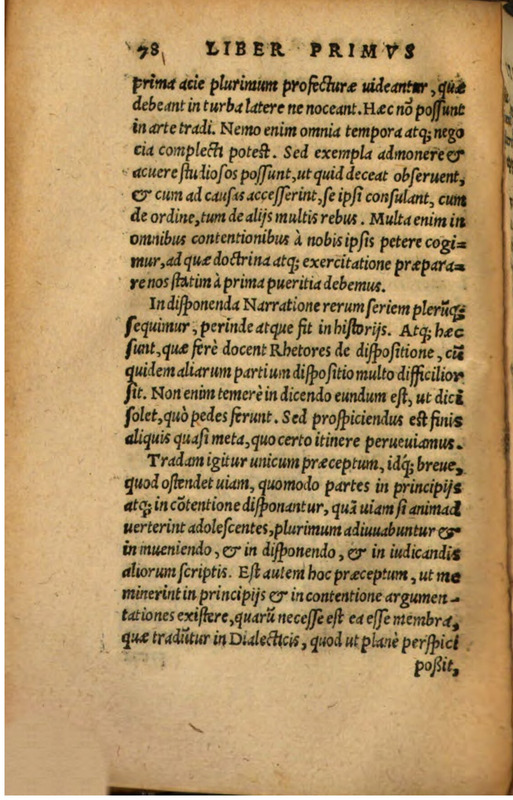 78 LIBER PRIMVS
prima acie plurimum profecturæ uideantur, quæ
debeant in turba latere ne noceant. Hæc nõ possunt
in arte tradi. Nemo enim omnia tempora atq; nego
cia complecti potest. Sed exempla admonere &
acuere studiosos possunt, ut quid deceat obseruent,
& cum ad causas accesserint, se ipsi consulant, cum
de ordine, tum de alijs multis rebus. Multa enim in
omnibus contentionibus à nobis ipsis petere cogi=
mur, ad quæ doctrina atq; exercitatione præpara=
re nos statim à prima pueritia debemus.
In disponenda Narratione rerum seriem plerũq;
sequimur, perinde atque fit in historijs. Atq; hæc
sunt, quæ ferè docent Rhetores de dispositione, cũ
quidem aliarum partium dispositio multo difficilior
sit. Non enim temerè in dicendo eundum est, ut dici
solet, quò pedes ferunt. Sed prospiciendus est finis
aliquis quasi meta, quo certo itinere perueuiamus.
Tradam igitur unicum præceptum, idq; breue,
quod ostendet uiam, quomodo partes in principijs
atq; in cõtentione disponantur, quã uiam si animad
uerterint adolescentes, plurimum adiuuabuntur &
in inueniendo, & in disponendo, & in iudicandis
aliorum scriptis. Est autem hoc præceptum, ut me
minerint in principijs & in contentione argumen-
tationes existere, quarũ necesse est ea esse membra,
quæ tradũtur in Dialecticis, quod ut planè perspici
poßit,